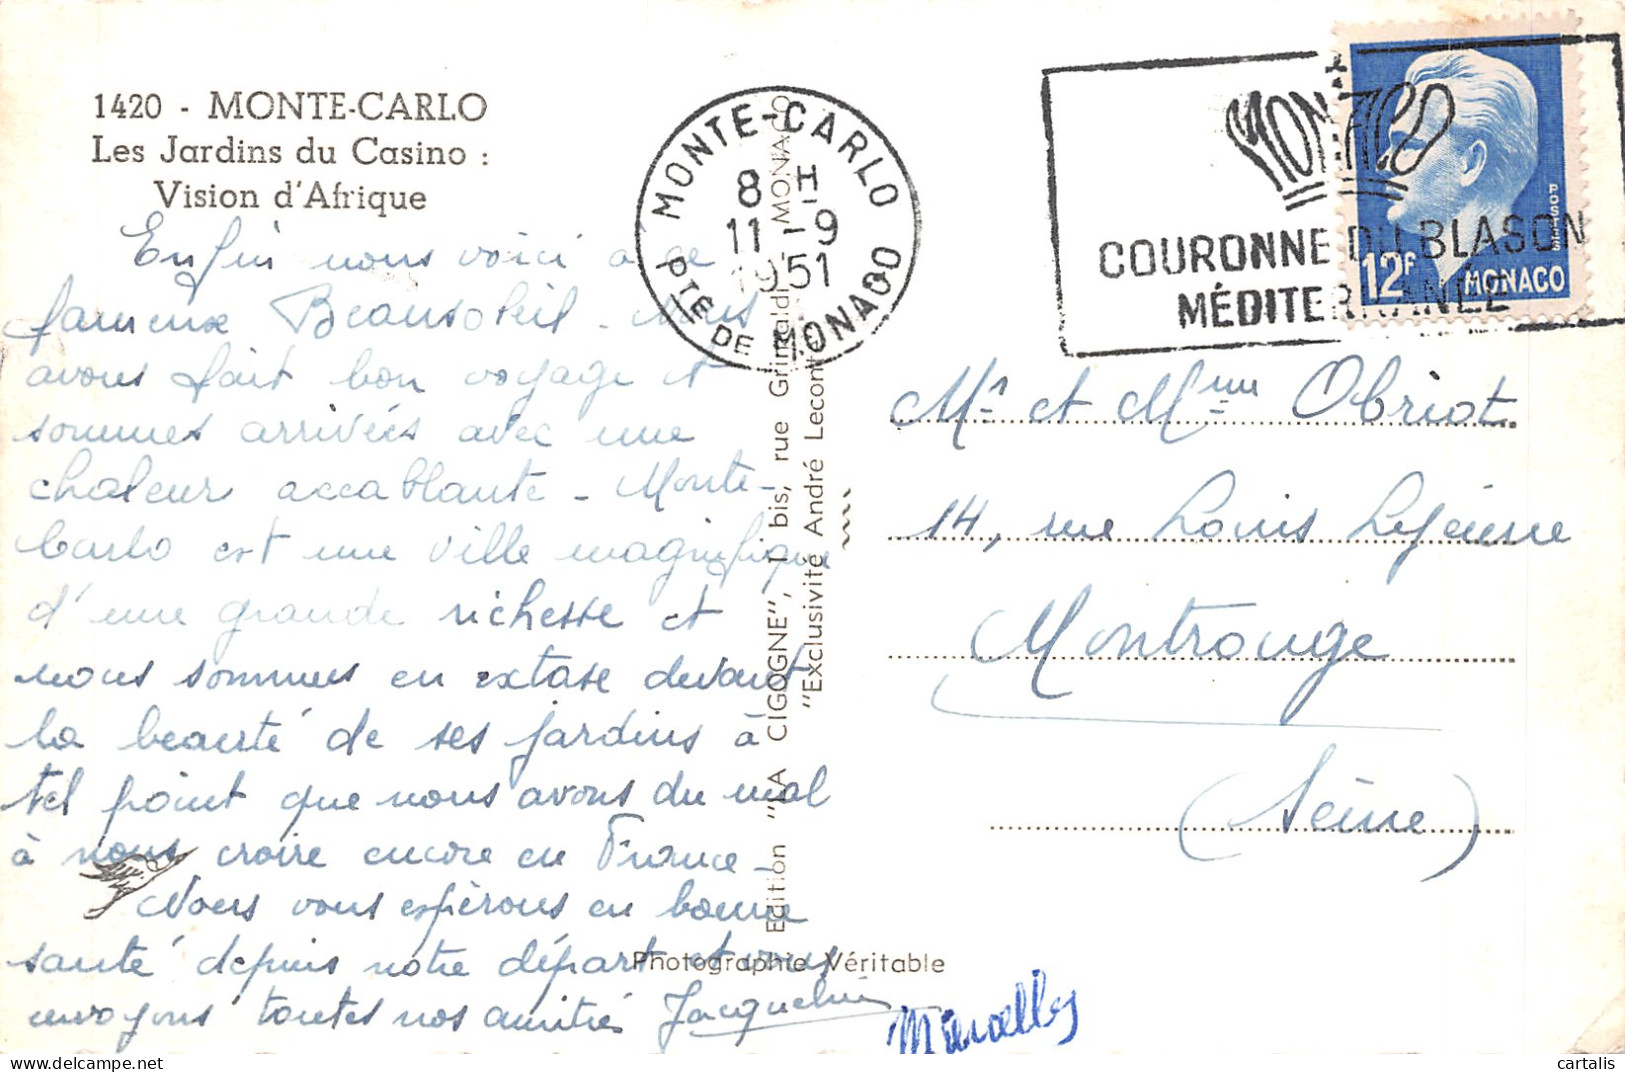 1420 - MONTE-CARLO
Les Jardins du Casino :
Vision d'Afrique
Enfin nous voici à ce
fameux Beausoleil - Nous
avons fait bon voyage et
sommes arrivées avec une
chaleur accablante - Monte-
Carlo est une ville magnifique
d'une grande richesse et
nous sommes en extase devant
la beauté de ses jardins à
tel point que nous avons du mal
à nous croire encore en France -
Nous vous espérons en bonne
santé depuis notre départ et vous
envoyons toutes nos amitiés Jacqueline
Marcelle
Edition "LA CIGOGNE", 1 bis, rue Grimaldi, MONACO
"Exclusivité André Leconte"
Photographie Véritable
MONTE-CARLO
8 H
11 -9
1951
PTÉ DE MONACO
MONACO
COURONNE DU BLASON
MÉDITERRANÉE
POSTES
12F MONACO
Mr et Mme Obriot
14, rue Louis Lejeune
Montrouge
(Seine)
cartalis